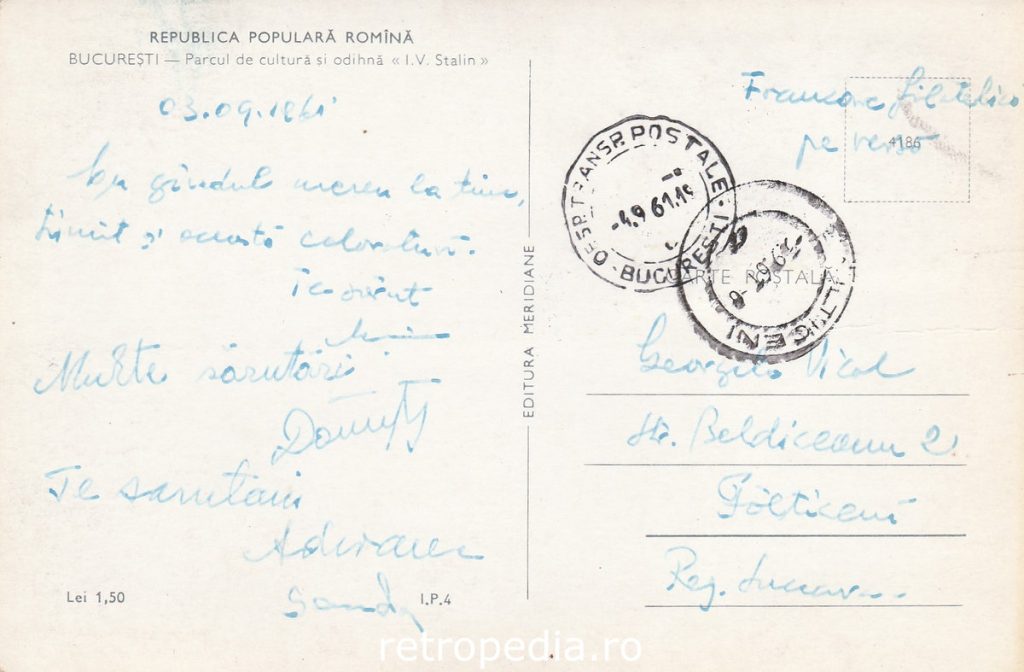 REPUBLICA POPULARĂ ROMÎNĂ
BUCUREȘTI — Parcul de cultură si odihnă « I.V. Stalin »
03.09.1961
Cu gîndul mereu la tine,
trimit și această
Te sărut
Multe sărutări
Te sărutăm
Sandu
Lei 1,50
I.P.4
EDITURA MERIDIANE
Francare filatelica
pe verso
4186
DESP. TRANSP. POSTALE
-4.9 61.19
BUCUREȘTI
FĂLTICENI
CARTE POSTALĂ
Nicol
Str. Beldiceanu 2
Fălticeni
Reg. Suceava
retropedia.ro